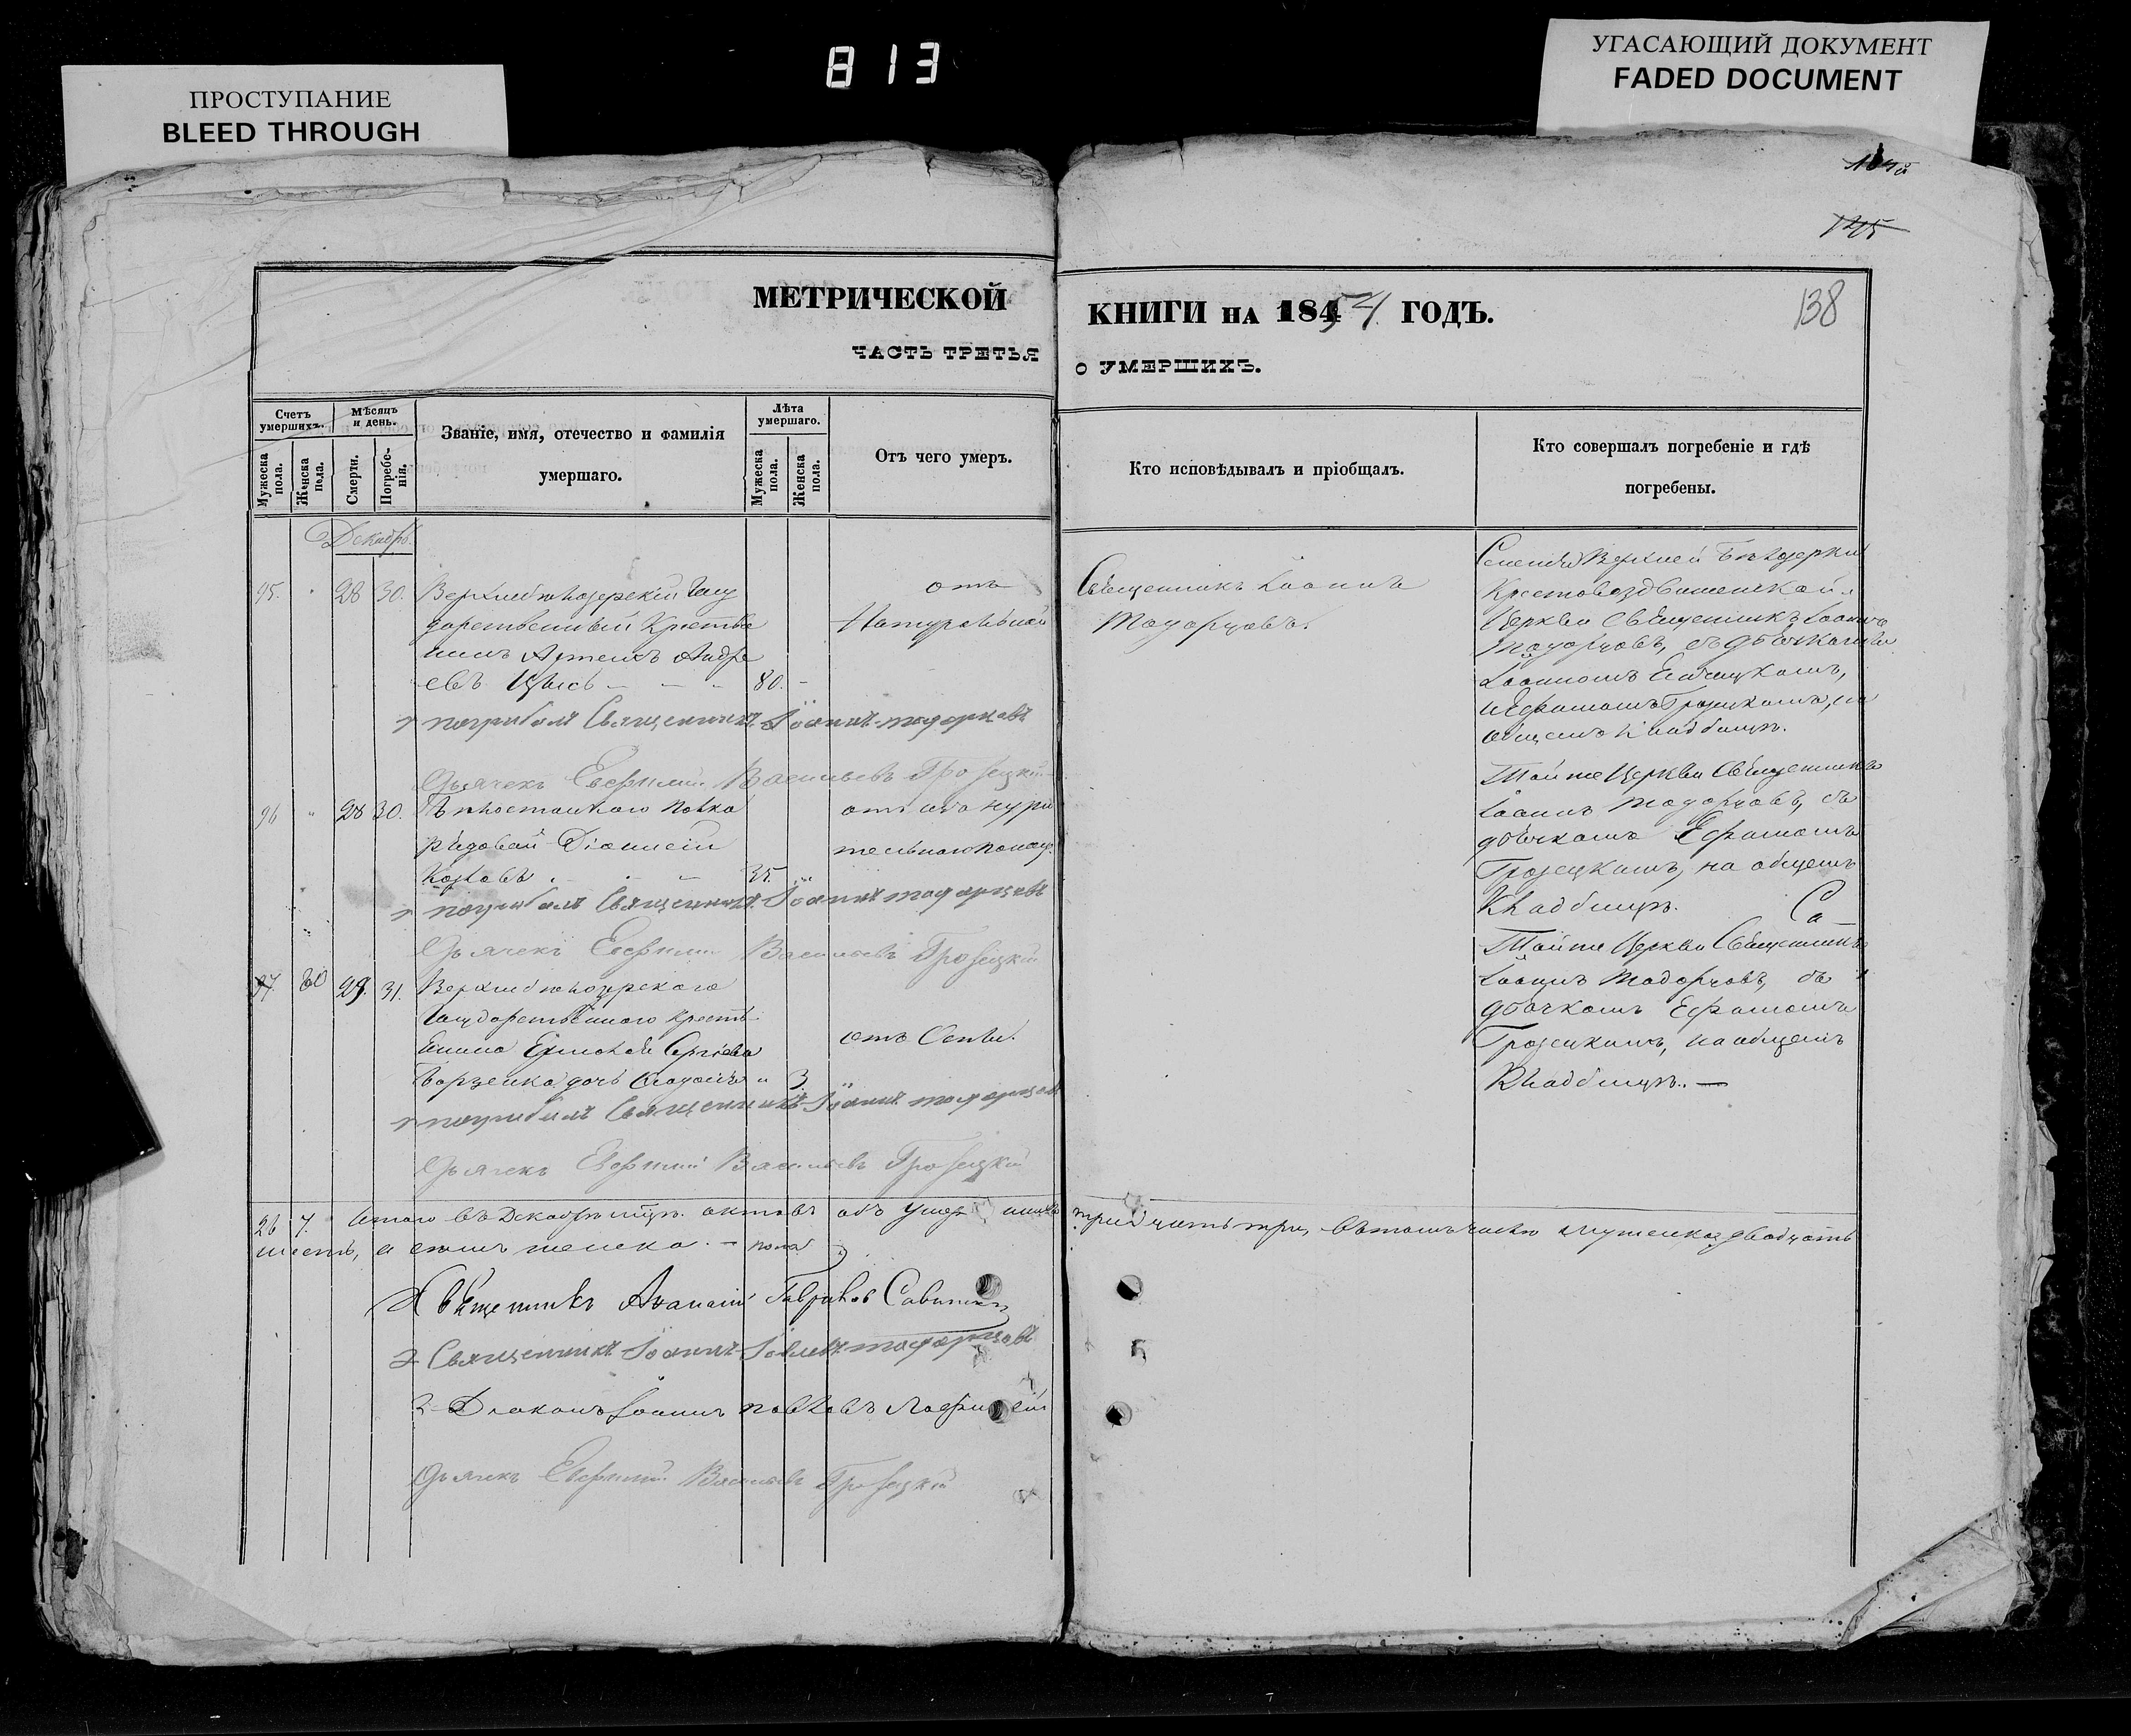 813
ПРОСТУПАНИЕ
BLEED THROUGH
УГАСАЮЩИЙ ДОКУМЕНТ
FADED DOCUMENT
138
МЕТРИЧЕСКОЙ КНИГИ НА 18454 ГОДЪ.
ЧАСТЬ ТРЕТЬЯ О УМЕРШИХЪ.
Счетъ умершихъ.
Мужеска пола.
Женска пола.
Мѣсяцъ и день.
Смерти.
Погребенія.
Званіе, имя, отечество и фамилія
умершаго.
Лѣта умершаго.
Мужеска пола.
Женска пола.
Отъ чего умеръ.
Кто исповѣдывалъ и пріобщалъ.
Кто совершалъ погребеніе и гдѣ
погребены.
Декабрь
95. 28 30. Верхнебѣлозерскій Госу
дарственный Крестья
нинъ Андре
евъ 80.
отъ
Натуральной
Священникъ Іоаннъ
Тодорцовъ.
Селенія Верхней Бѣлозерки
Крестовоздвиженской
Церкви Священникъ Іоаннъ
Тодорцовъ, съ дьячками
Іоанномъ
Грозецкимъ, на
общемъ кладбищѣ.
погребалъ Священникъ Іоаннъ Тодорцовъ
Дьячекъ Евфимій Васильевъ Грозецкій
96 28 30. Бѣлостоцкаго полка
рядовой Діонисій
Козловъ 35.
Той же Церкви Священникъ
Іоаннъ Тодорцовъ, съ
дьячкомъ Ефимомъ
Грозецкимъ, на общемъ
кладбищѣ.
погребалъ Священникъ Іоаннъ Тодорцовъ
Дьячекъ Евфимій Васильевъ Грозецкій
29. 31. Верхнебѣлозерскаго
Государственнаго кресть
янина Сергіева
дочь 3.
отъ Оспы.
Той же Церкви Священникъ
Іоаннъ Тодорцовъ, съ
дьячкомъ Ефимомъ
Грозецкимъ, на общемъ
кладбищѣ.
погребалъ Священникъ Іоаннъ Тодорцовъ
Дьячекъ Евфимій Васильевъ Грозецкій
26 7. Итого въ Декабрѣ мцѣ. объ тридцать три, въ томъ числѣ мужеска двадцать
шесть, а семь женска пола
Священникъ Гавриловъ
2 Священникъ Іоаннъ Тодорцовъ
3 Діаконъ Іоаннъ Павловъ
Дьячекъ Евфимій Васильевъ Грозецкій